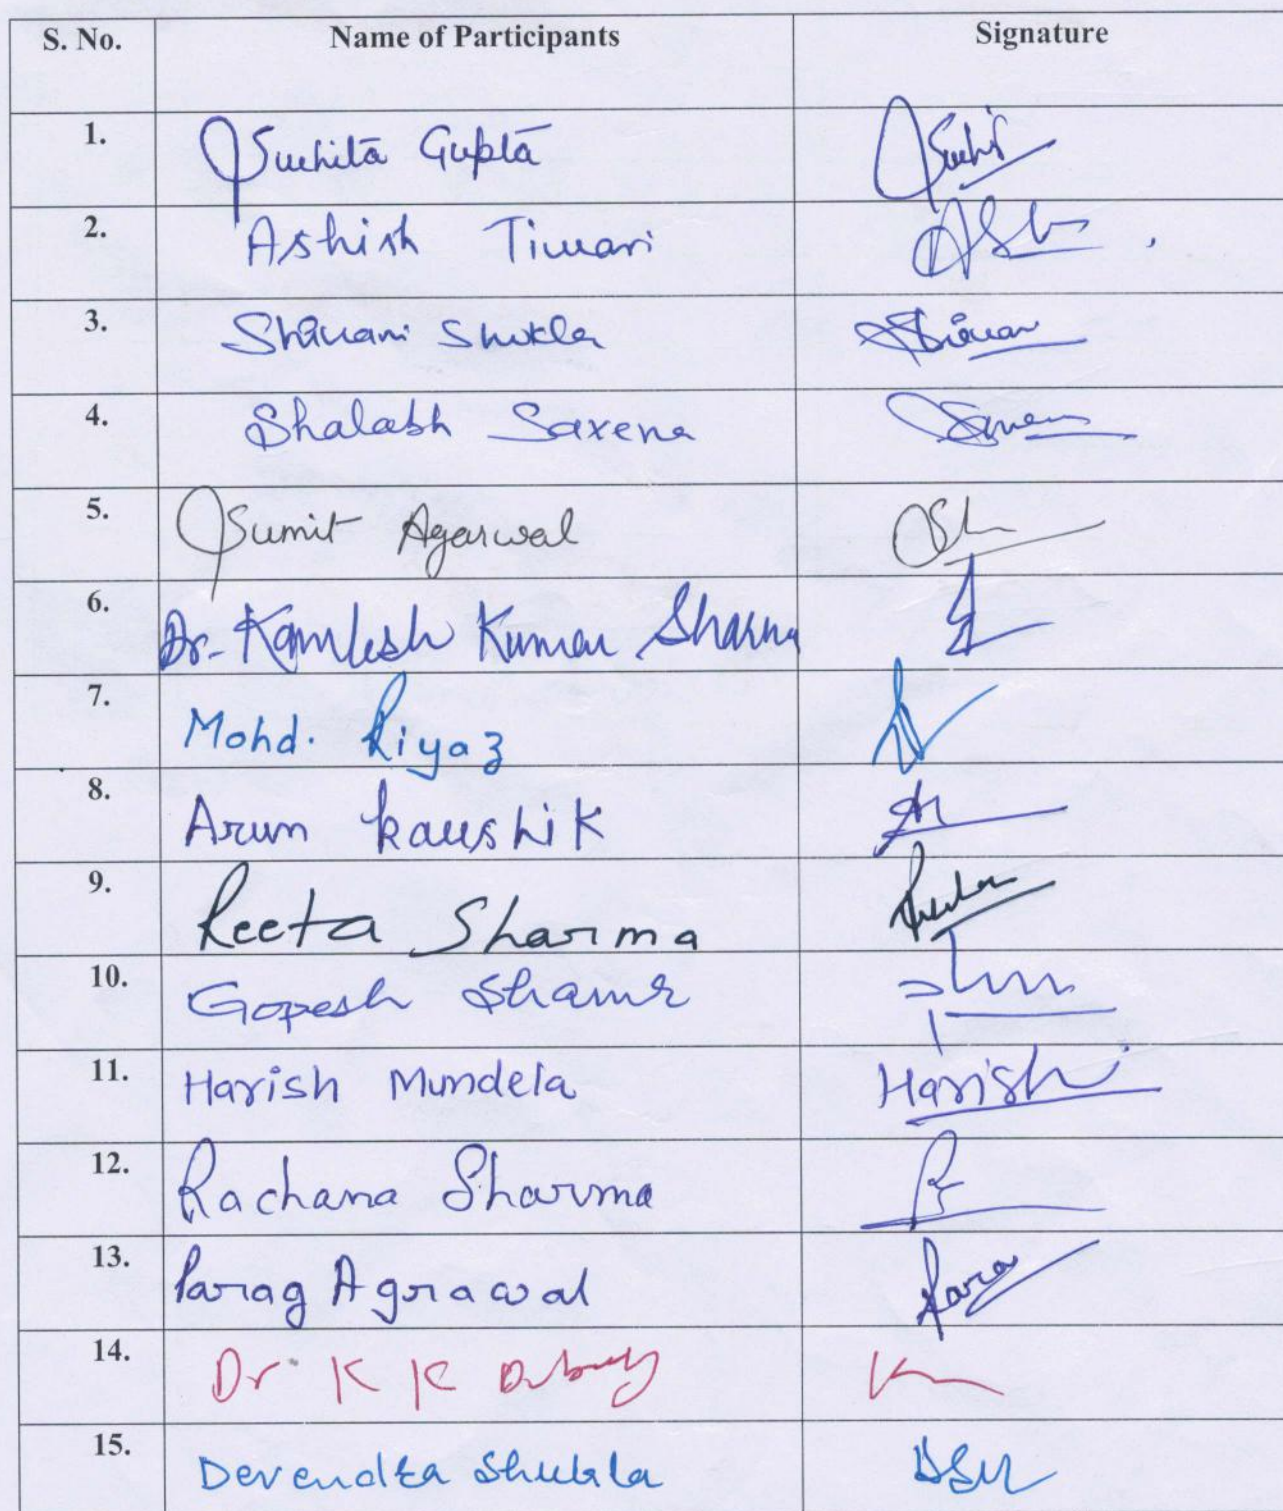 S. No. Name of Participants Signature
1. Suchita Gupta Suchi
2. Ashish Tiwari
3. Shivani Shukla Shivani
4. Shalabh Saxena
5. Sumit Agarwal
6. Dr. Kamlesh Kumar Sharma
7. Mohd. Riyaz
8. Arun Kaushik
9. Reeta Sharma
10. Gopesh
11. Harish Mundela Harish
12. Rachana Sharma
13. Parag Agrawal
14. Dr K K Dubey
15. Devendra Shukla